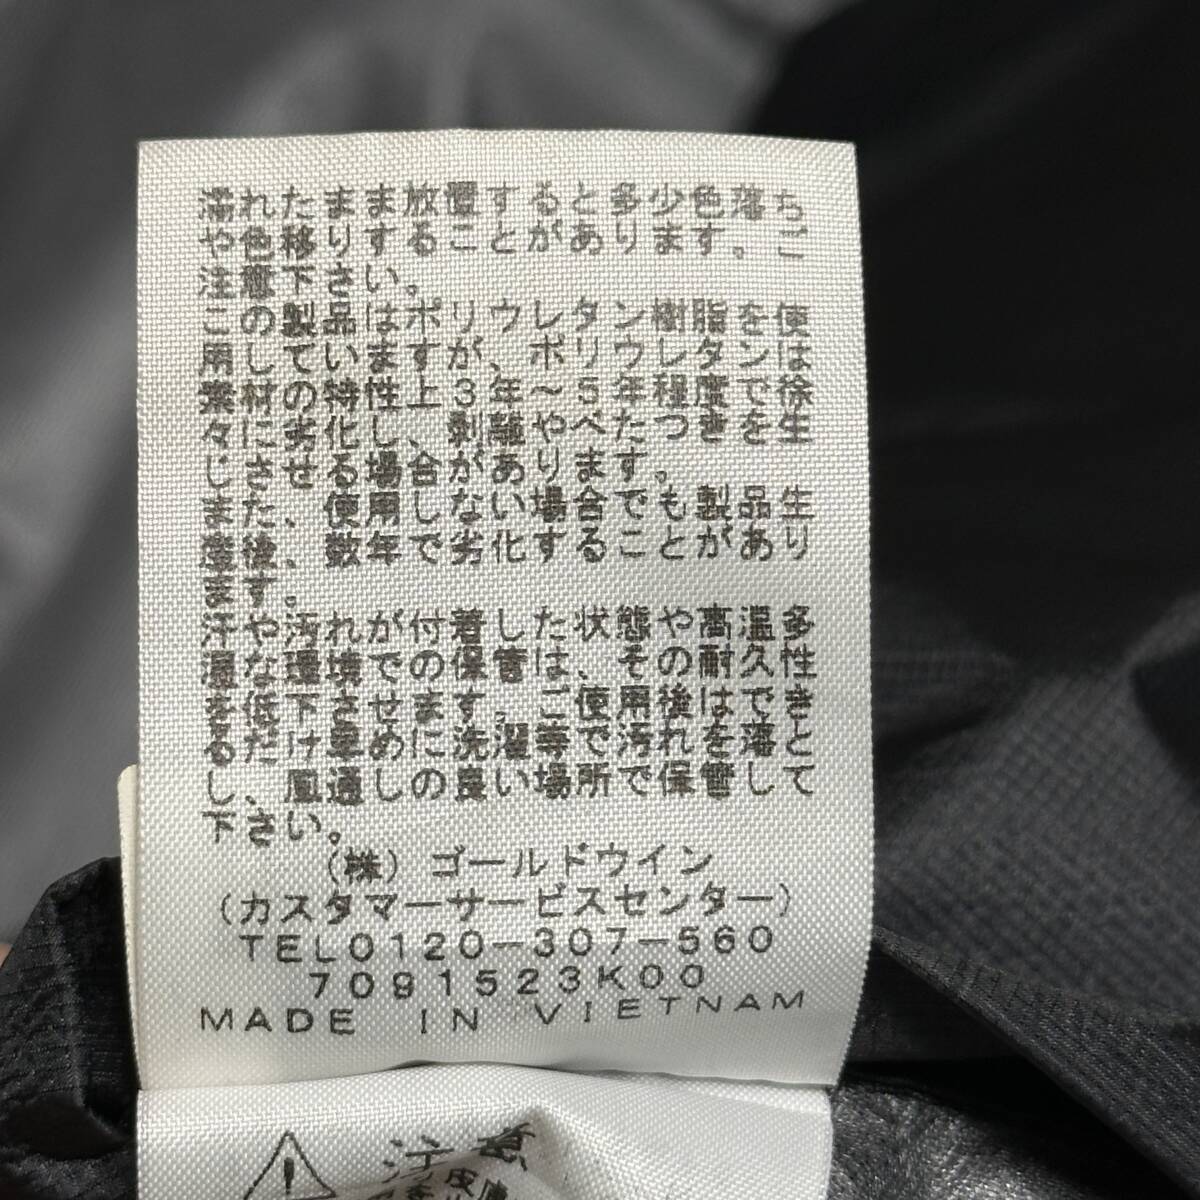 濡れたまま放置すると多少色落ち
や色移りすることがあります。ご
注意下さい。
この製品はポリウレタン樹脂を使
用していますが、ポリウレタンは
素材の特性上、3年〜5年程度で徐
々に劣化し、剥離やべたつきを生
じさせる場合があります。
また、使用しない場合でも製品生
産後、数年で劣化することがあり
ます。
汗や汚れが付着した状態や高温多
湿な環境での保管は、その耐久性
を低下させます。ご使用後はでき
るだけ早めに洗濯等で汚れを落と
し、風通しの良い場所で保管して
下さい。
(株)ゴールドウイン
(カスタマーサービスセンター)
TEL0120-307-560
7091523K00
MADE IN VIETNAM
注意